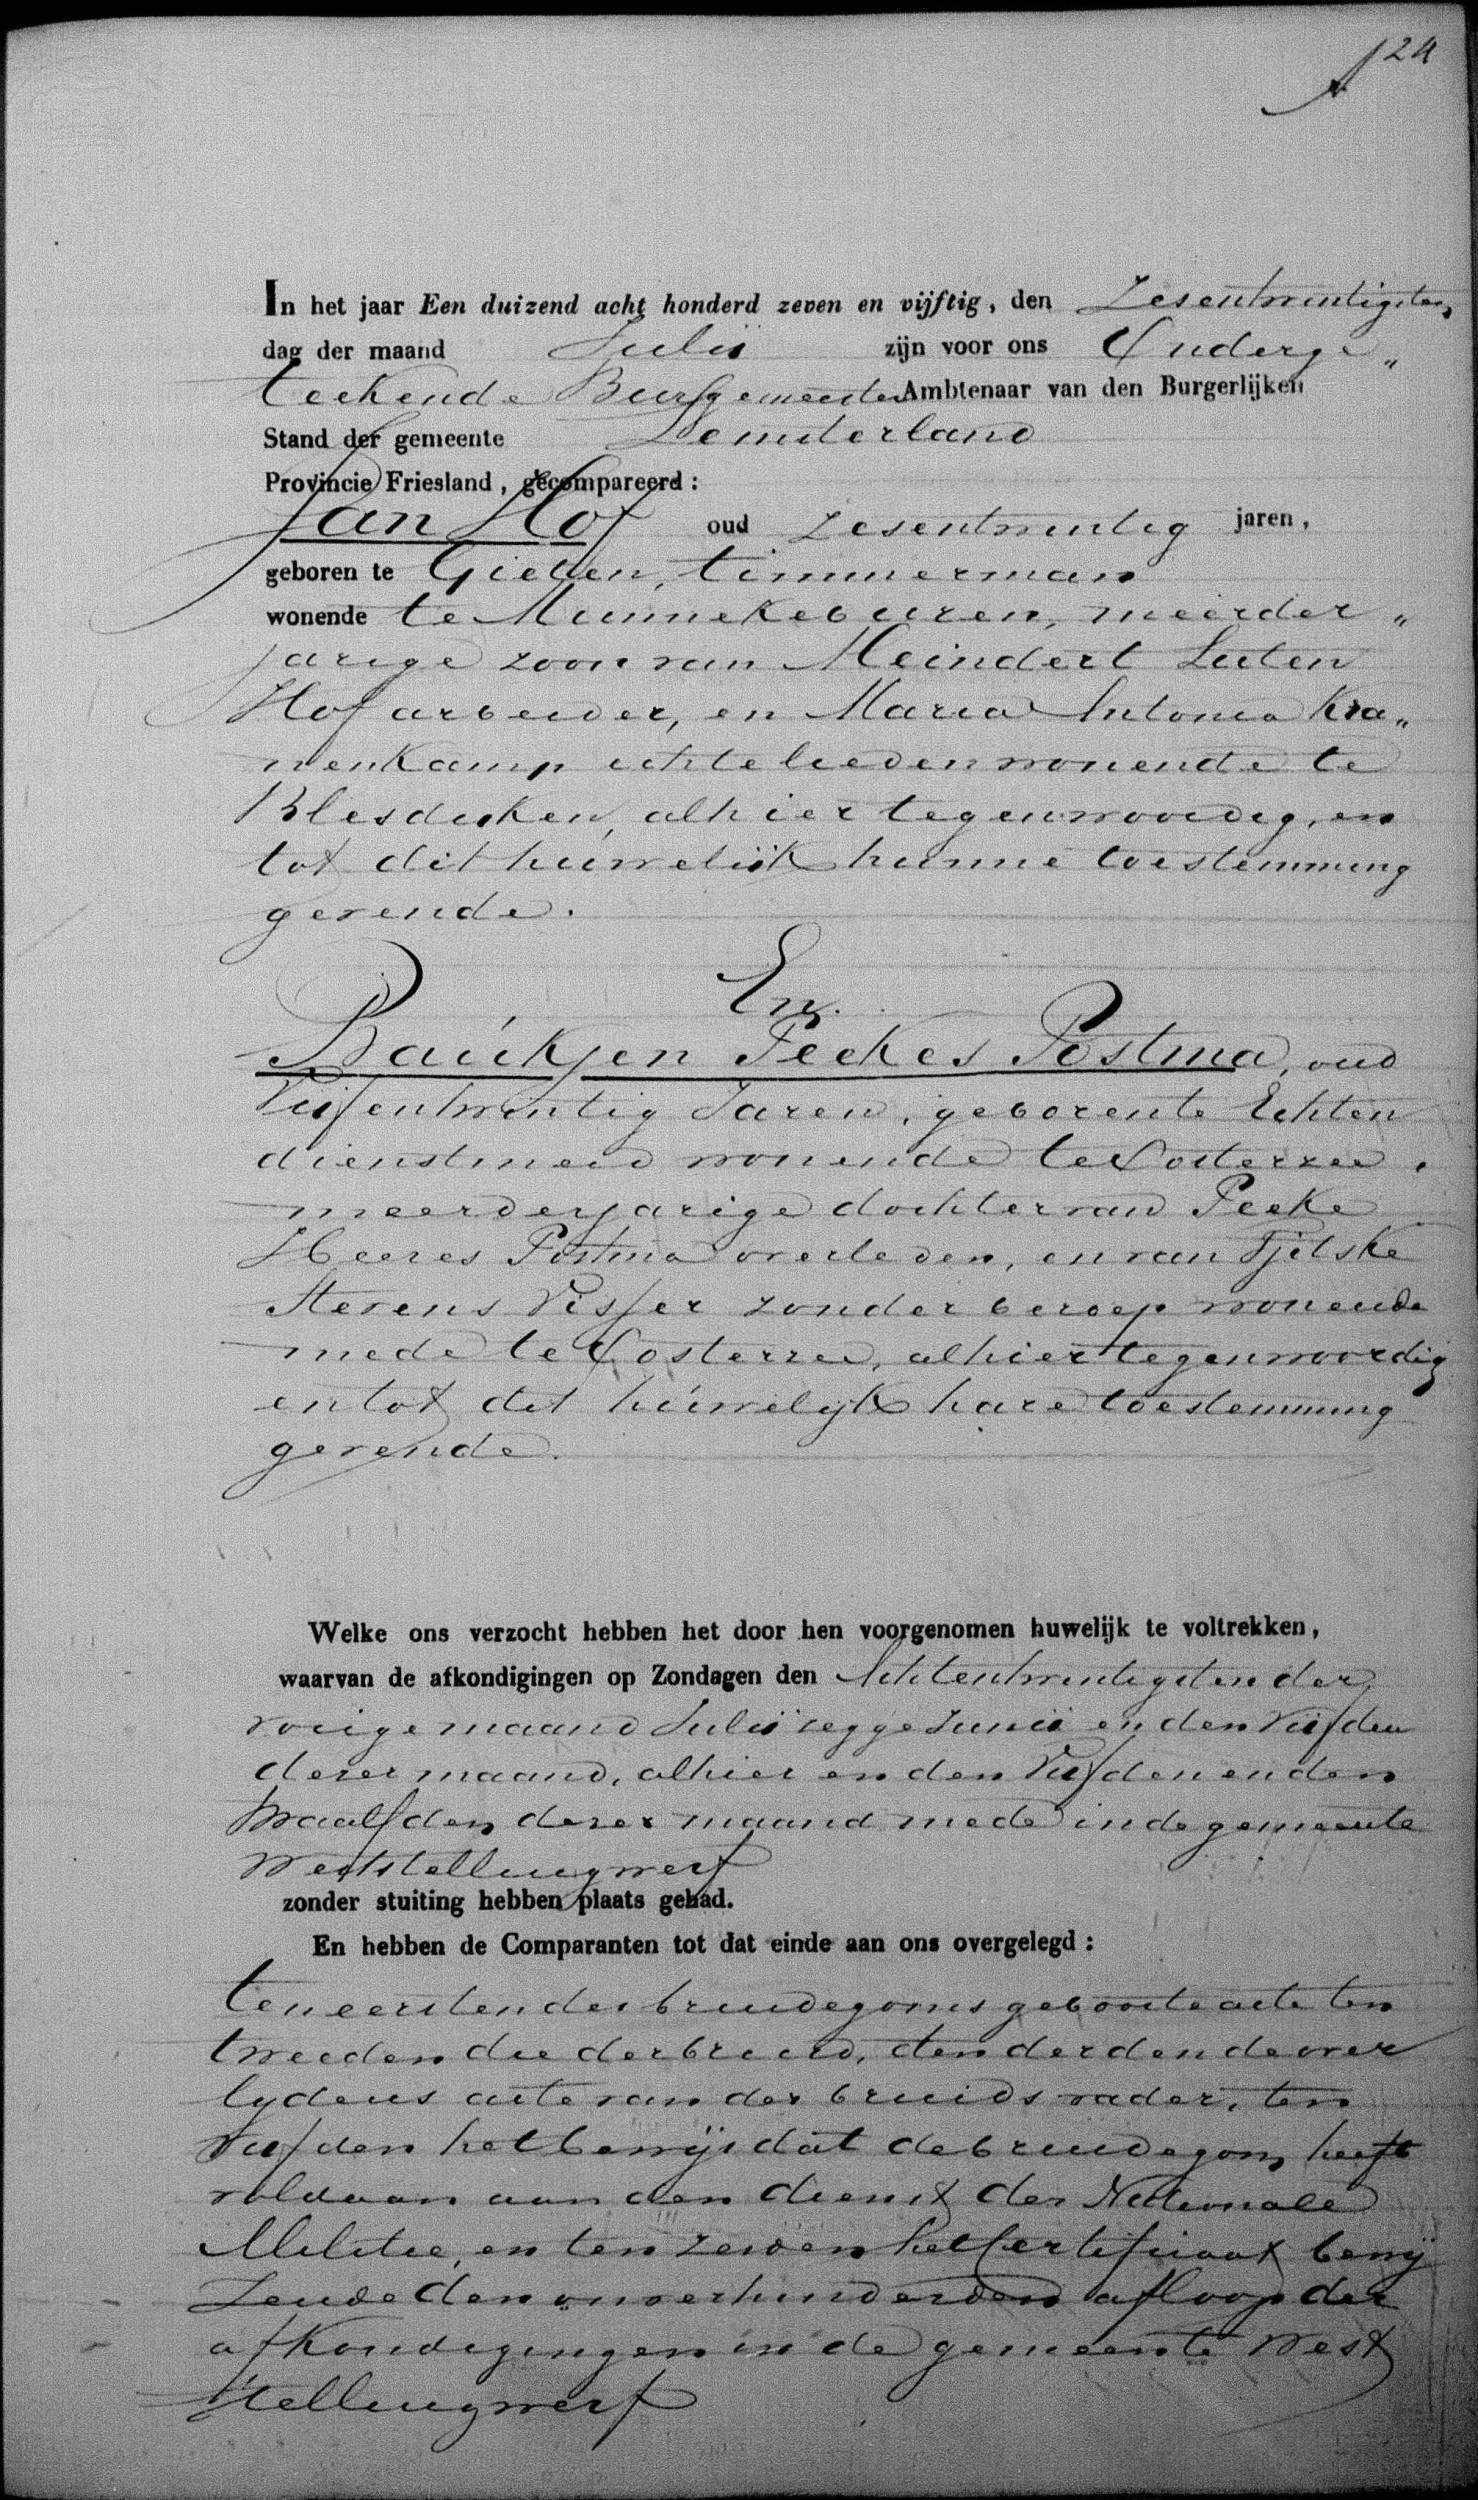 24
In het jaar Een duizend acht honderd zeven en vijftig, den Zesentwintigsten
dag der maand Julij zijn voor ons Onderge„
teekende Burgemeester Ambtenaar van den Burgerlijken
Stand der gemeente Lemsterland
Provincie Friesland, gecompareerd:
Jan Hof oud zesentwintig jaren,
geboren te Gieten, timmerman
wonende te Munnekeburen, meerder„
jarige zoon van Meindert Luten
Hof arbeider, en Maria Antonia Kra„
nenkamp echtelieden wonende te
Blesdijken, alhier tegenwoordig, en
tot dit huwelijk hunne toestemming
gevende.
En
Baukjen Peekes Postma, oud
Vijfentwintig Jaren, geboren te Echten
dienstmeid wonende te Oosterzee,
meerderjarige dochter van Peeke
Heeres Postma overleden, en van Tjitske
Stevens Visser zonder beroep wonende
mede te Oosterzee, alhier tegenwoordig
en tot dit huwelijk hare toestemming
gevende.
Welke ons verzocht hebben het door hen voorgenomen huwelijk te voltrekken,
waarvan de afkondigingen op Zondagen den Achtentwintigsten der
vorige maand Julij zegge Junij en den Vijfden
dezer maand, alhier en den Vijfden en den
twaalfden dezer maand mede in de gemeente
Weststellingwerf
zonder stuiting hebben plaats gehad.
En hebben de Comparanten tot dat einde aan ons overgelegd:
ten eersten des bruidegoms geboorte acte ten
tweeden die der bruid, ten derden de over
lijdens acte van der bruids vader, ten
Vijfden het bewijs dat de bruidegom heeft
voldaan aan den dienst der Nationale
Militie, en ten zesden het Certificaat bewij
zende den onverhinderden afloop der
afkondigingen in de gemeente West
stellingwerf